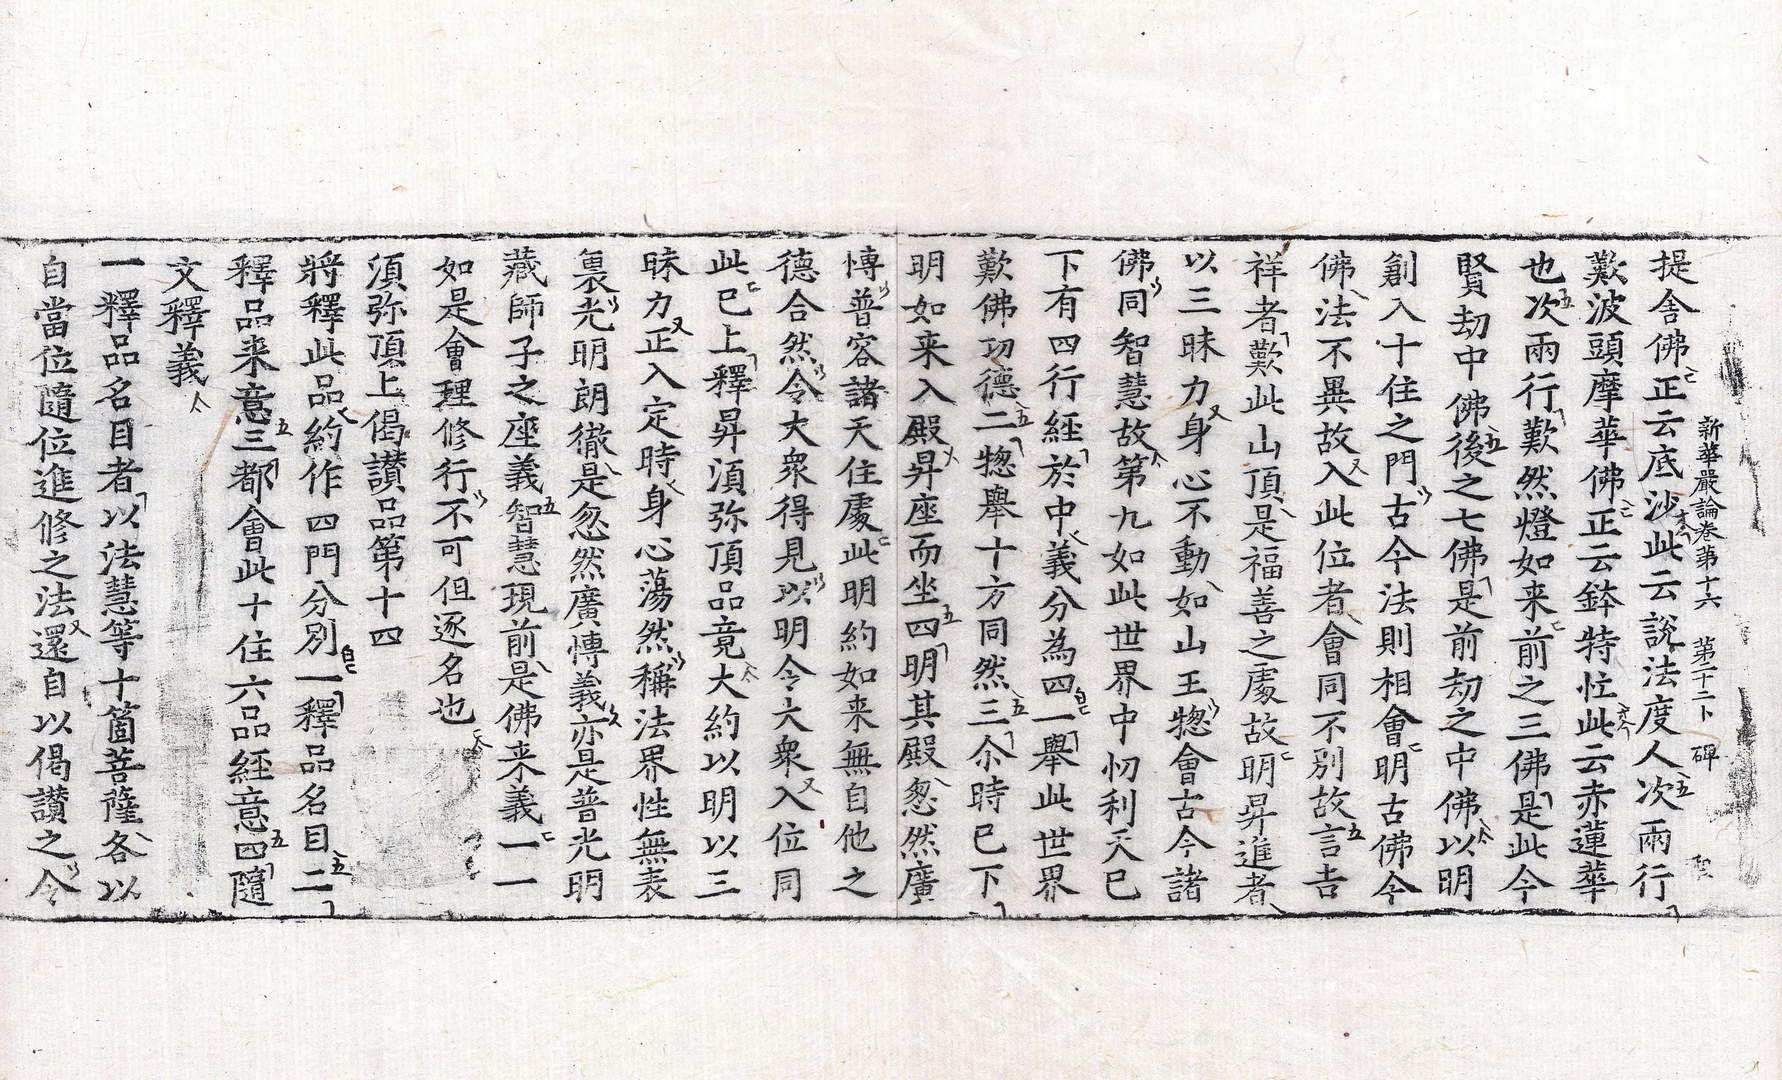 新華嚴論卷第十六 第十二卜 碑
提舍佛正云底沙此云說法度人次兩行
歎波頭摩華佛正云鉢特忙此云赤蓮華
也次兩行歎然燈如来前之三佛是此今
賢劫中佛後之七佛是前劫之中佛以明
創入十住之門古今法則相會明古佛今
佛法不異故入此位者會同不別故言吉
祥者歎此山頂是福善之處故明昇進者
以三昧力身心不動如山王惣會古今諸
佛同智慧故第九如此世界中忉利天已
下有四行經於中義分為四一舉此世界
歎佛功德二惣舉十方同然三尒時已下
明如来入殿昇座而坐四明其殿忽然廣
慱普容諸天住處此明約如来無自他之
德合然令大衆得見以明今大衆入位同
此已上釋昇湏弥頂品竟大約以明以三
昧力正入定時身心蕩然稱法界性無表
裏光明朗徹是忽然廣慱義亦是普光明
藏師子之座義智慧現前是佛来義一一
如是會理修行不可但逐名也
湏弥頂上偈讃品第十四
將釋此品約作四門分別一釋品名目二
釋品来意三都會此十住六品經意四隨
文釋義
一釋品名目者以法慧等十箇菩薩各以
自當位隨位進修之法還自以偈讃之令